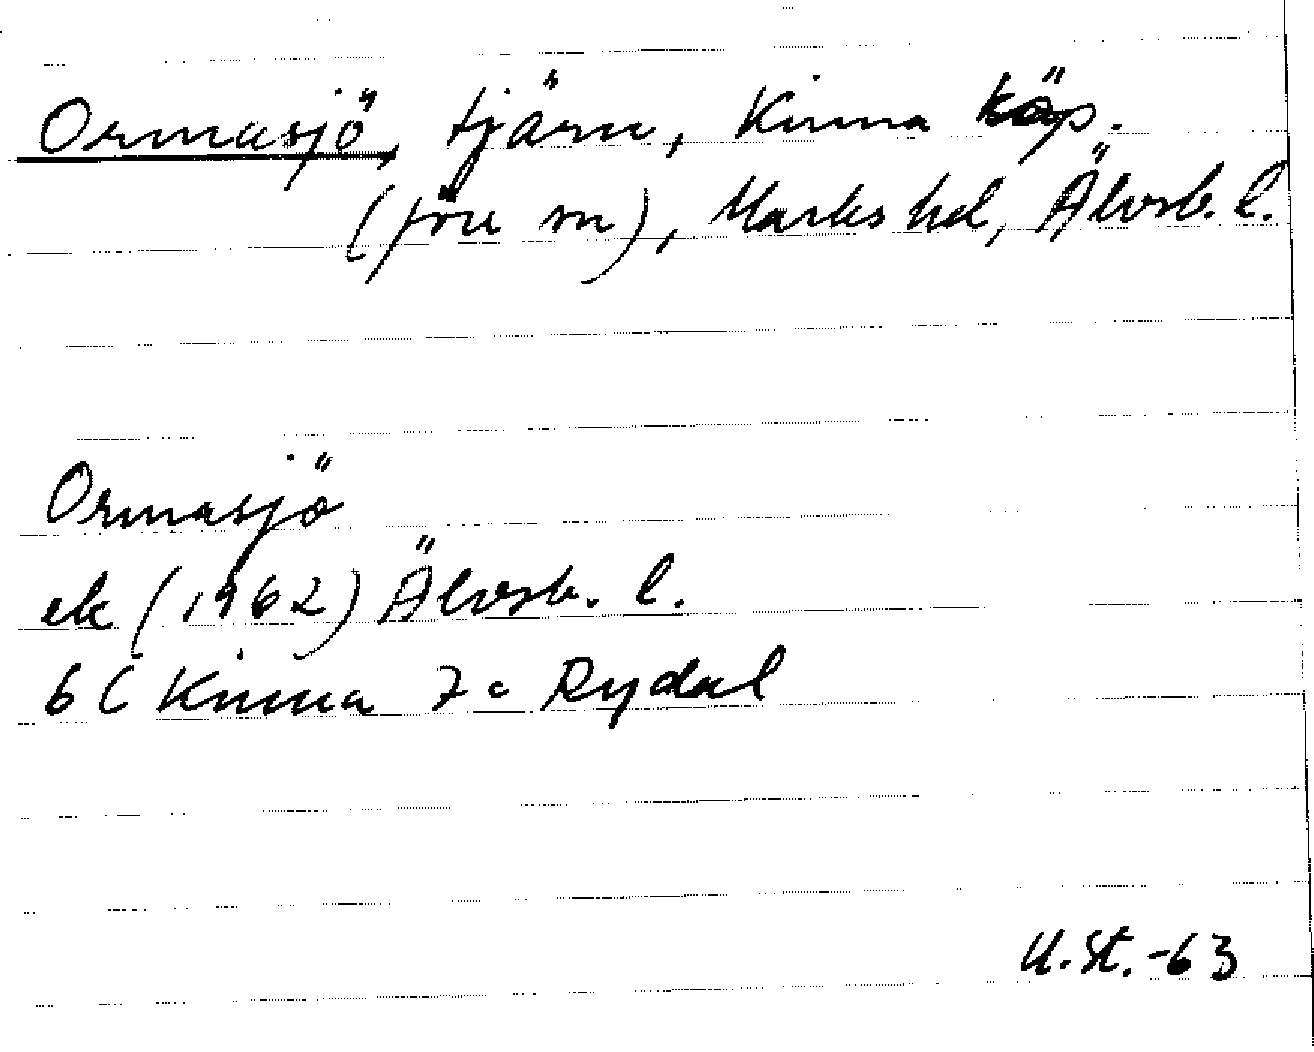 Ormasjö, tjärn, Kinna köp.
(förr sn), Marks hd, Älvsb. l.
Ormasjö
ek (1962) Älvsb. l.
6 C Kinna 7 c Rydal
U. St. -63